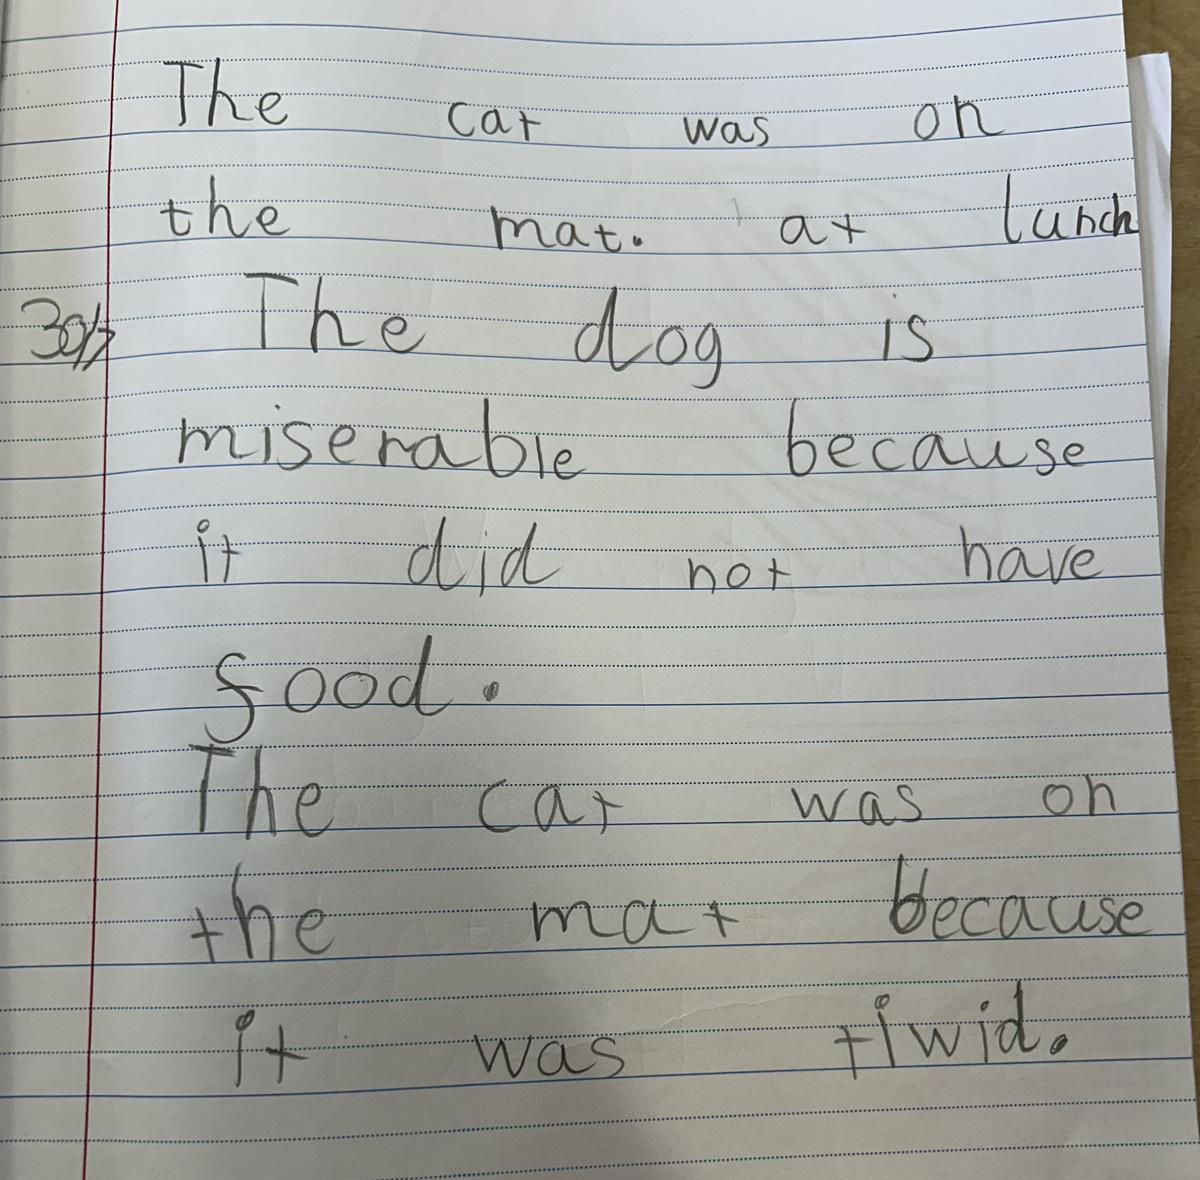 The cat was on
the mat. at lunch
30/7 The dog is
miserable because
it did not have
food.
The cat was on
the mat because
it was tiwid.